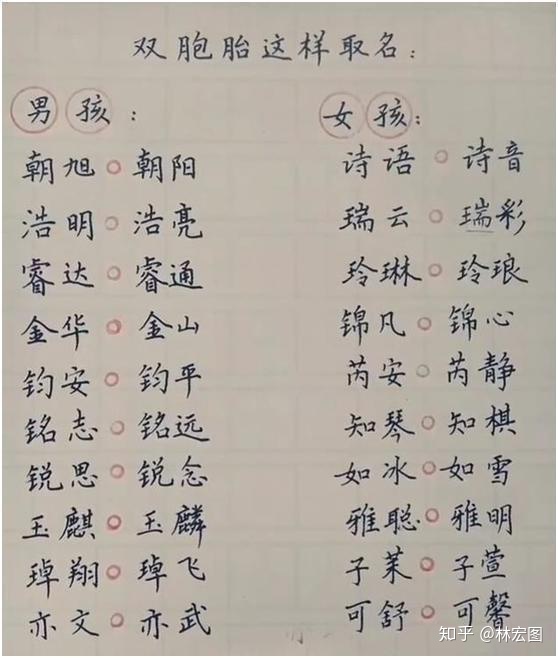 双胞胎这样取名：
男孩：
朝旭 朝阳
浩明 浩亮
睿达 睿通
金华 金山
钧安 钧平
铭志 铭远
锐思 锐念
玉麒 玉麟
琸翔 琸飞
亦文 亦武
女孩：
诗语 诗音
瑞云 瑞彩
玲琳 玲琅
锦凡 锦心
芮安 芮静
知琴 知棋
如冰 如雪
雅聪 雅明
子茉 子萱
可舒 可馨
知乎 @林宏图